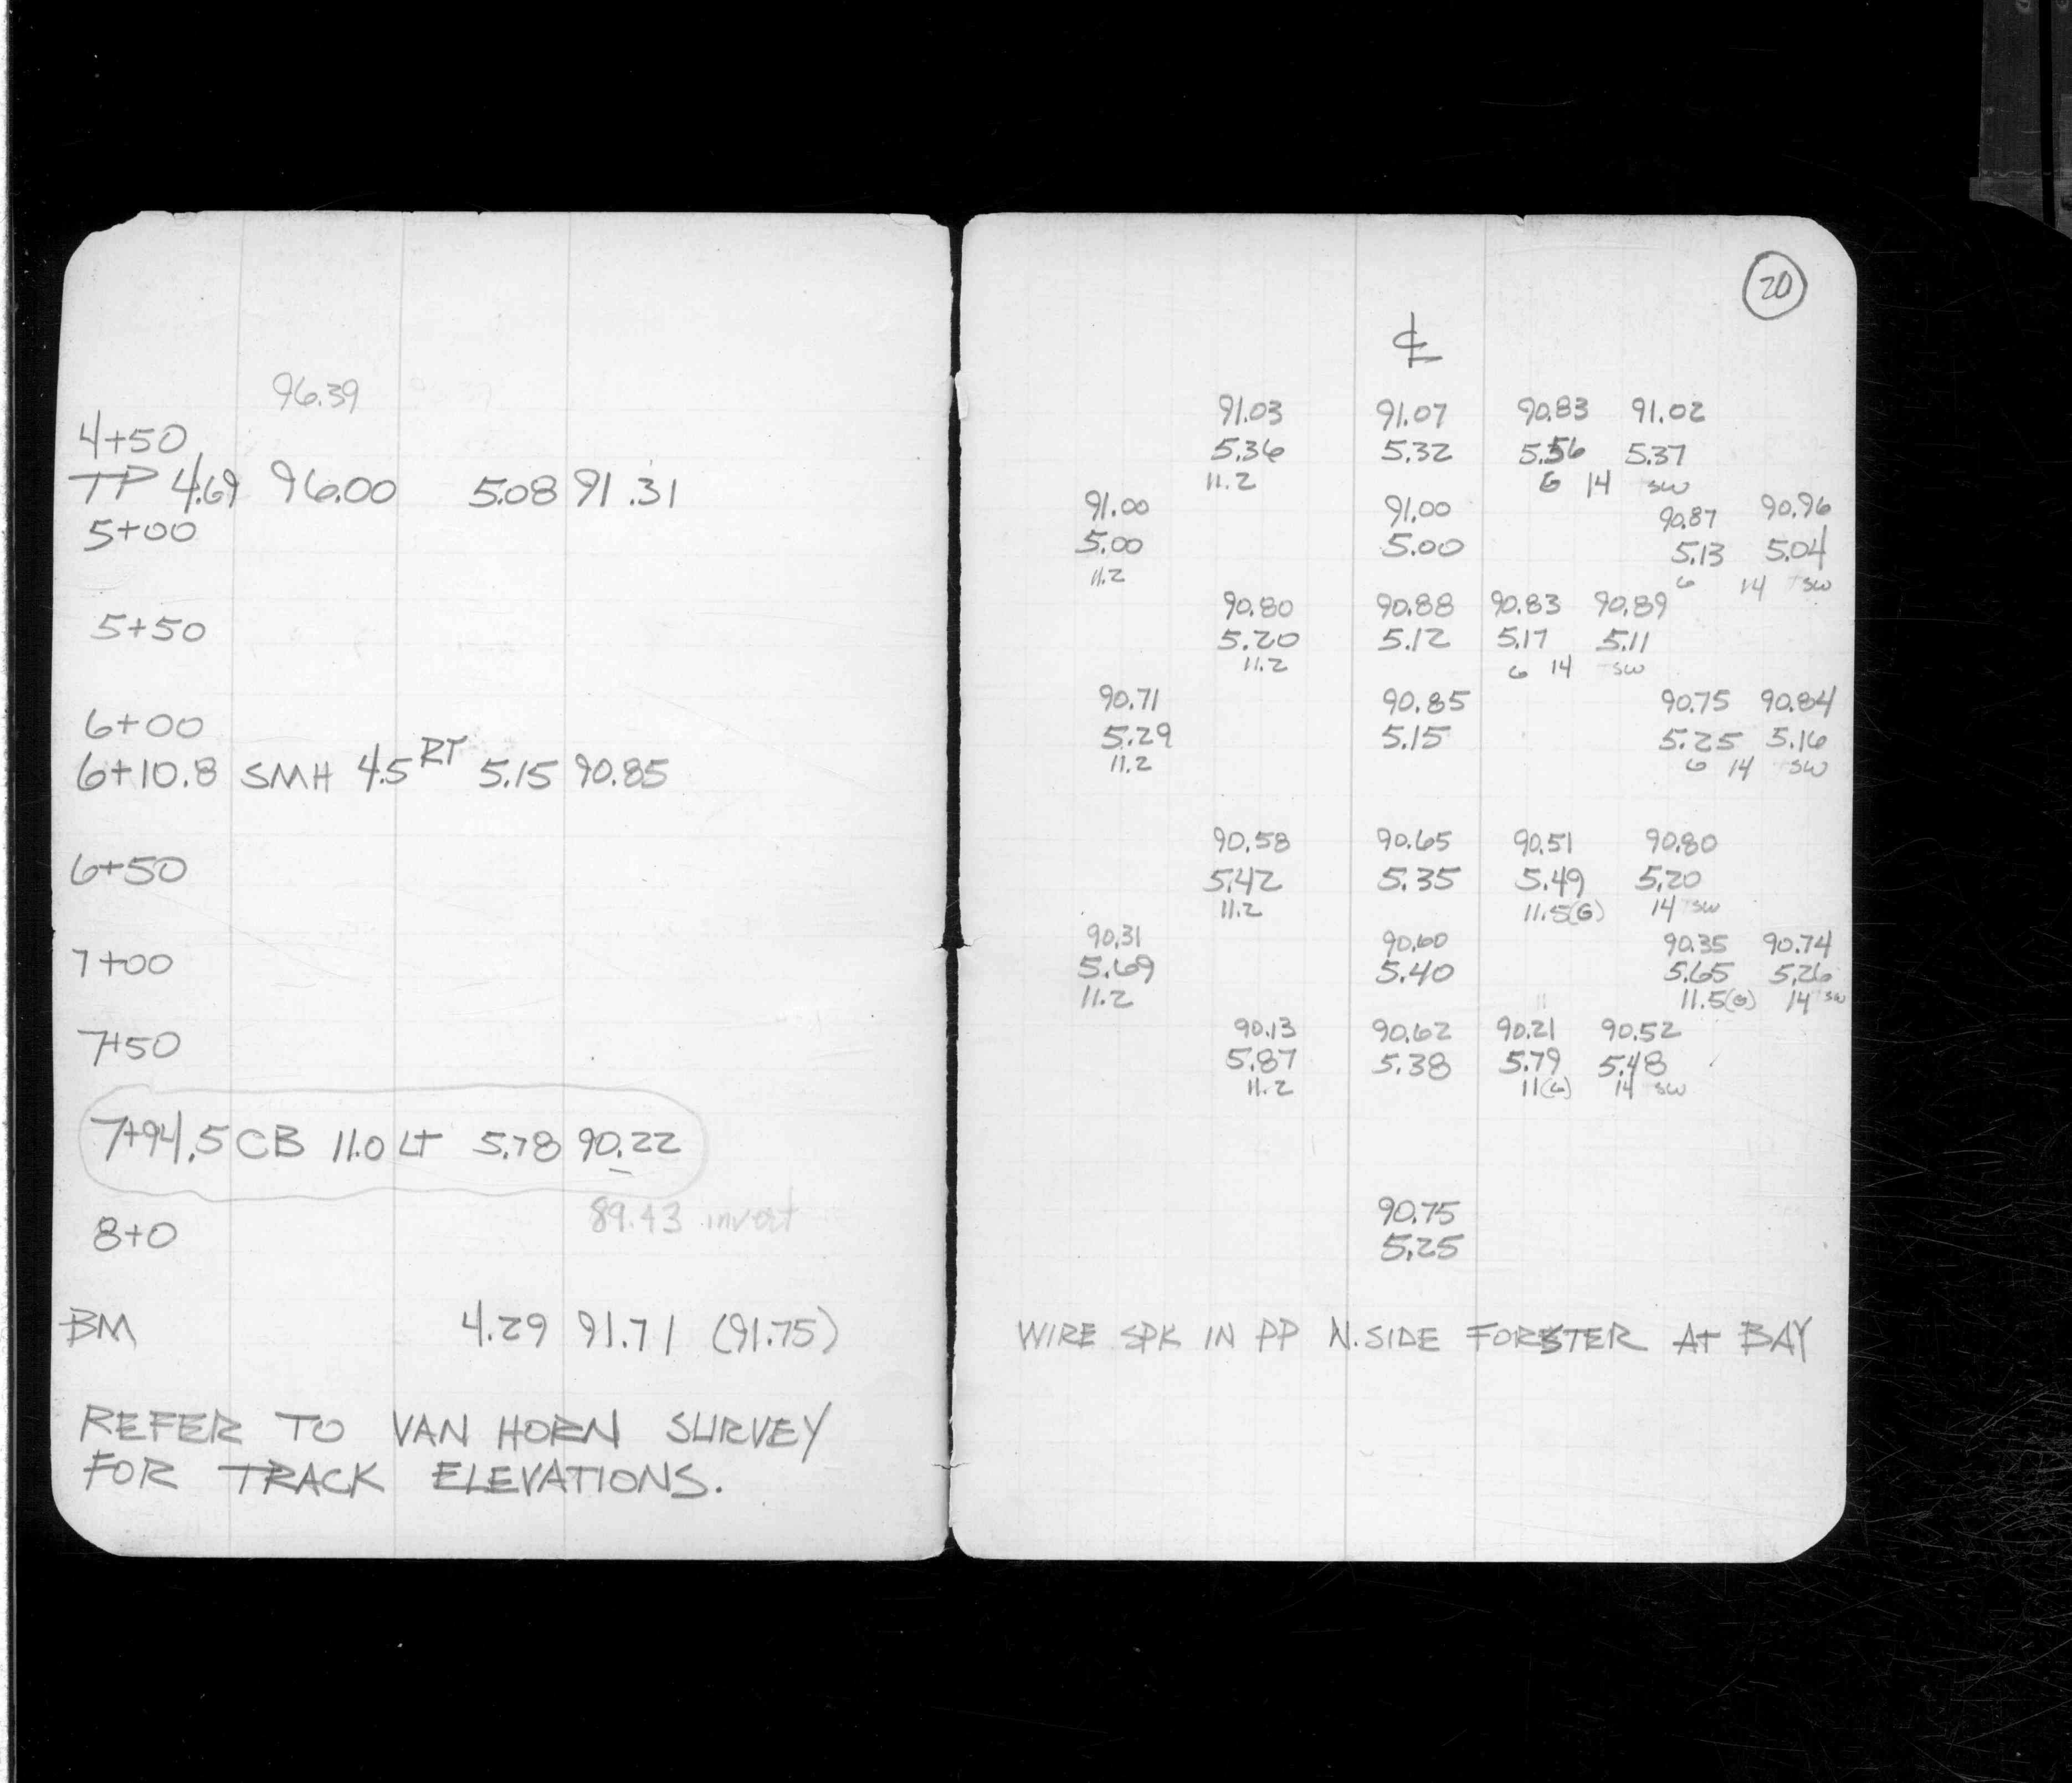 96.39
4+50
TP 4.69 96.00 5.08 91.31
5+00
5+50
6+00
6+10.8 SMH 4.5 RT 5.15 90.85
6+50
7+00
7+50
7+94.5 CB 11.0 LT 5.78 90.22
89.43 invert
8+0
BM 4.29 91.71 (91.75)
REFER TO VAN HORN SURVEY
FOR TRACK ELEVATIONS.
20
℄
91.03 91.07 90.83 91.02
5.36 5.32 5.56 5.37
11.2 G 14 SW
91.00 91.00 90.87 90.96
5.00 5.00 5.13 5.04
11.2 G 14 SW
90.80 90.88 90.83 90.89
5.20 5.12 5.17 5.11
11.2 G 14 SW
90.71 90.85 90.75 90.84
5.29 5.15 5.25 5.16
11.2 G 14 SW
90.58 90.65 90.51 90.80
5.42 5.35 5.49 5.20
11.2 11.5(G) 14 SW
90.31 90.60 90.35 90.74
5.69 5.40 5.65 5.26
11.2 11.5(G) 14 SW
90.13 90.62 90.21 90.52
5.87 5.38 5.79 5.48
11.2 11(G) 14 SW
90.75
5.25
WIRE SPK IN PP N. SIDE FORSTER AT BAY